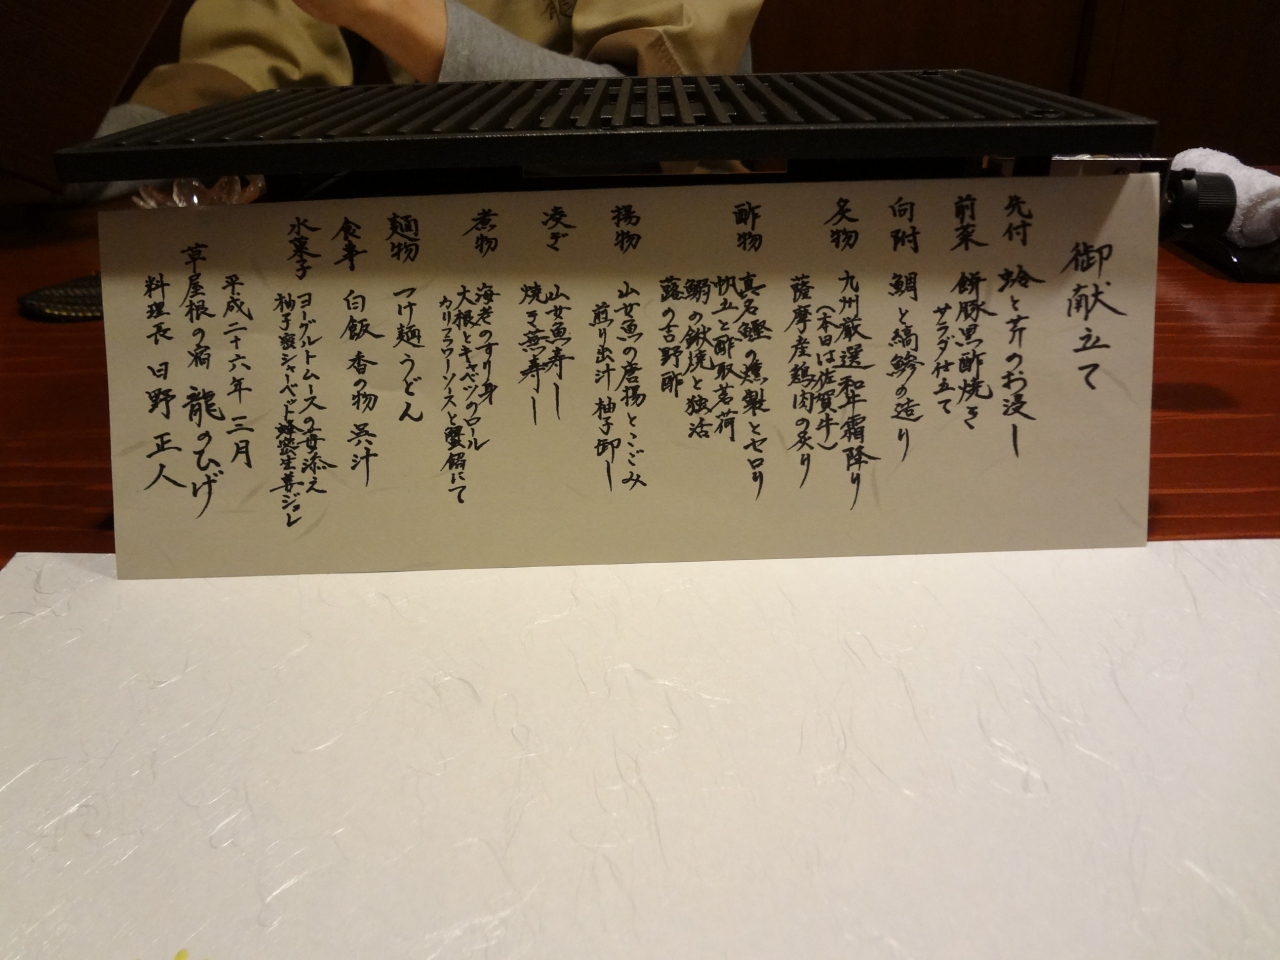 御献立て
先付 蛤と芹のお浸し
前菜 餅豚黒酢焼き
サラダ仕立て
向附 鯛と縞鯵の造り
炙物 九州厳選和牛霜降り
(本日は佐賀牛)
薩摩産鶏肉の炙り
酢物 真名鰹の燻製とセロリ
帆立と酢取茗荷
鰯の鍬焼と独活
蕗の吉野酢
揚物 山女魚の唐揚とこごみ
煎り出汁 柚子卸し
凌ぎ 山女魚寿し
焼き蕪寿し
煮物 海老のすり身
大根とキャベツのロール
カリフラワーソースと蟹餡にて
麺物 つけ麺うどん
食事 白飯 香の物 呉汁
水菓子 ヨーグルトムースの苺添え
柚子蜜シャーベット蜂蜜生姜ジュレ
平成二十六年 三月
草屋根の宿 龍のひげ
料理長 日野 正人